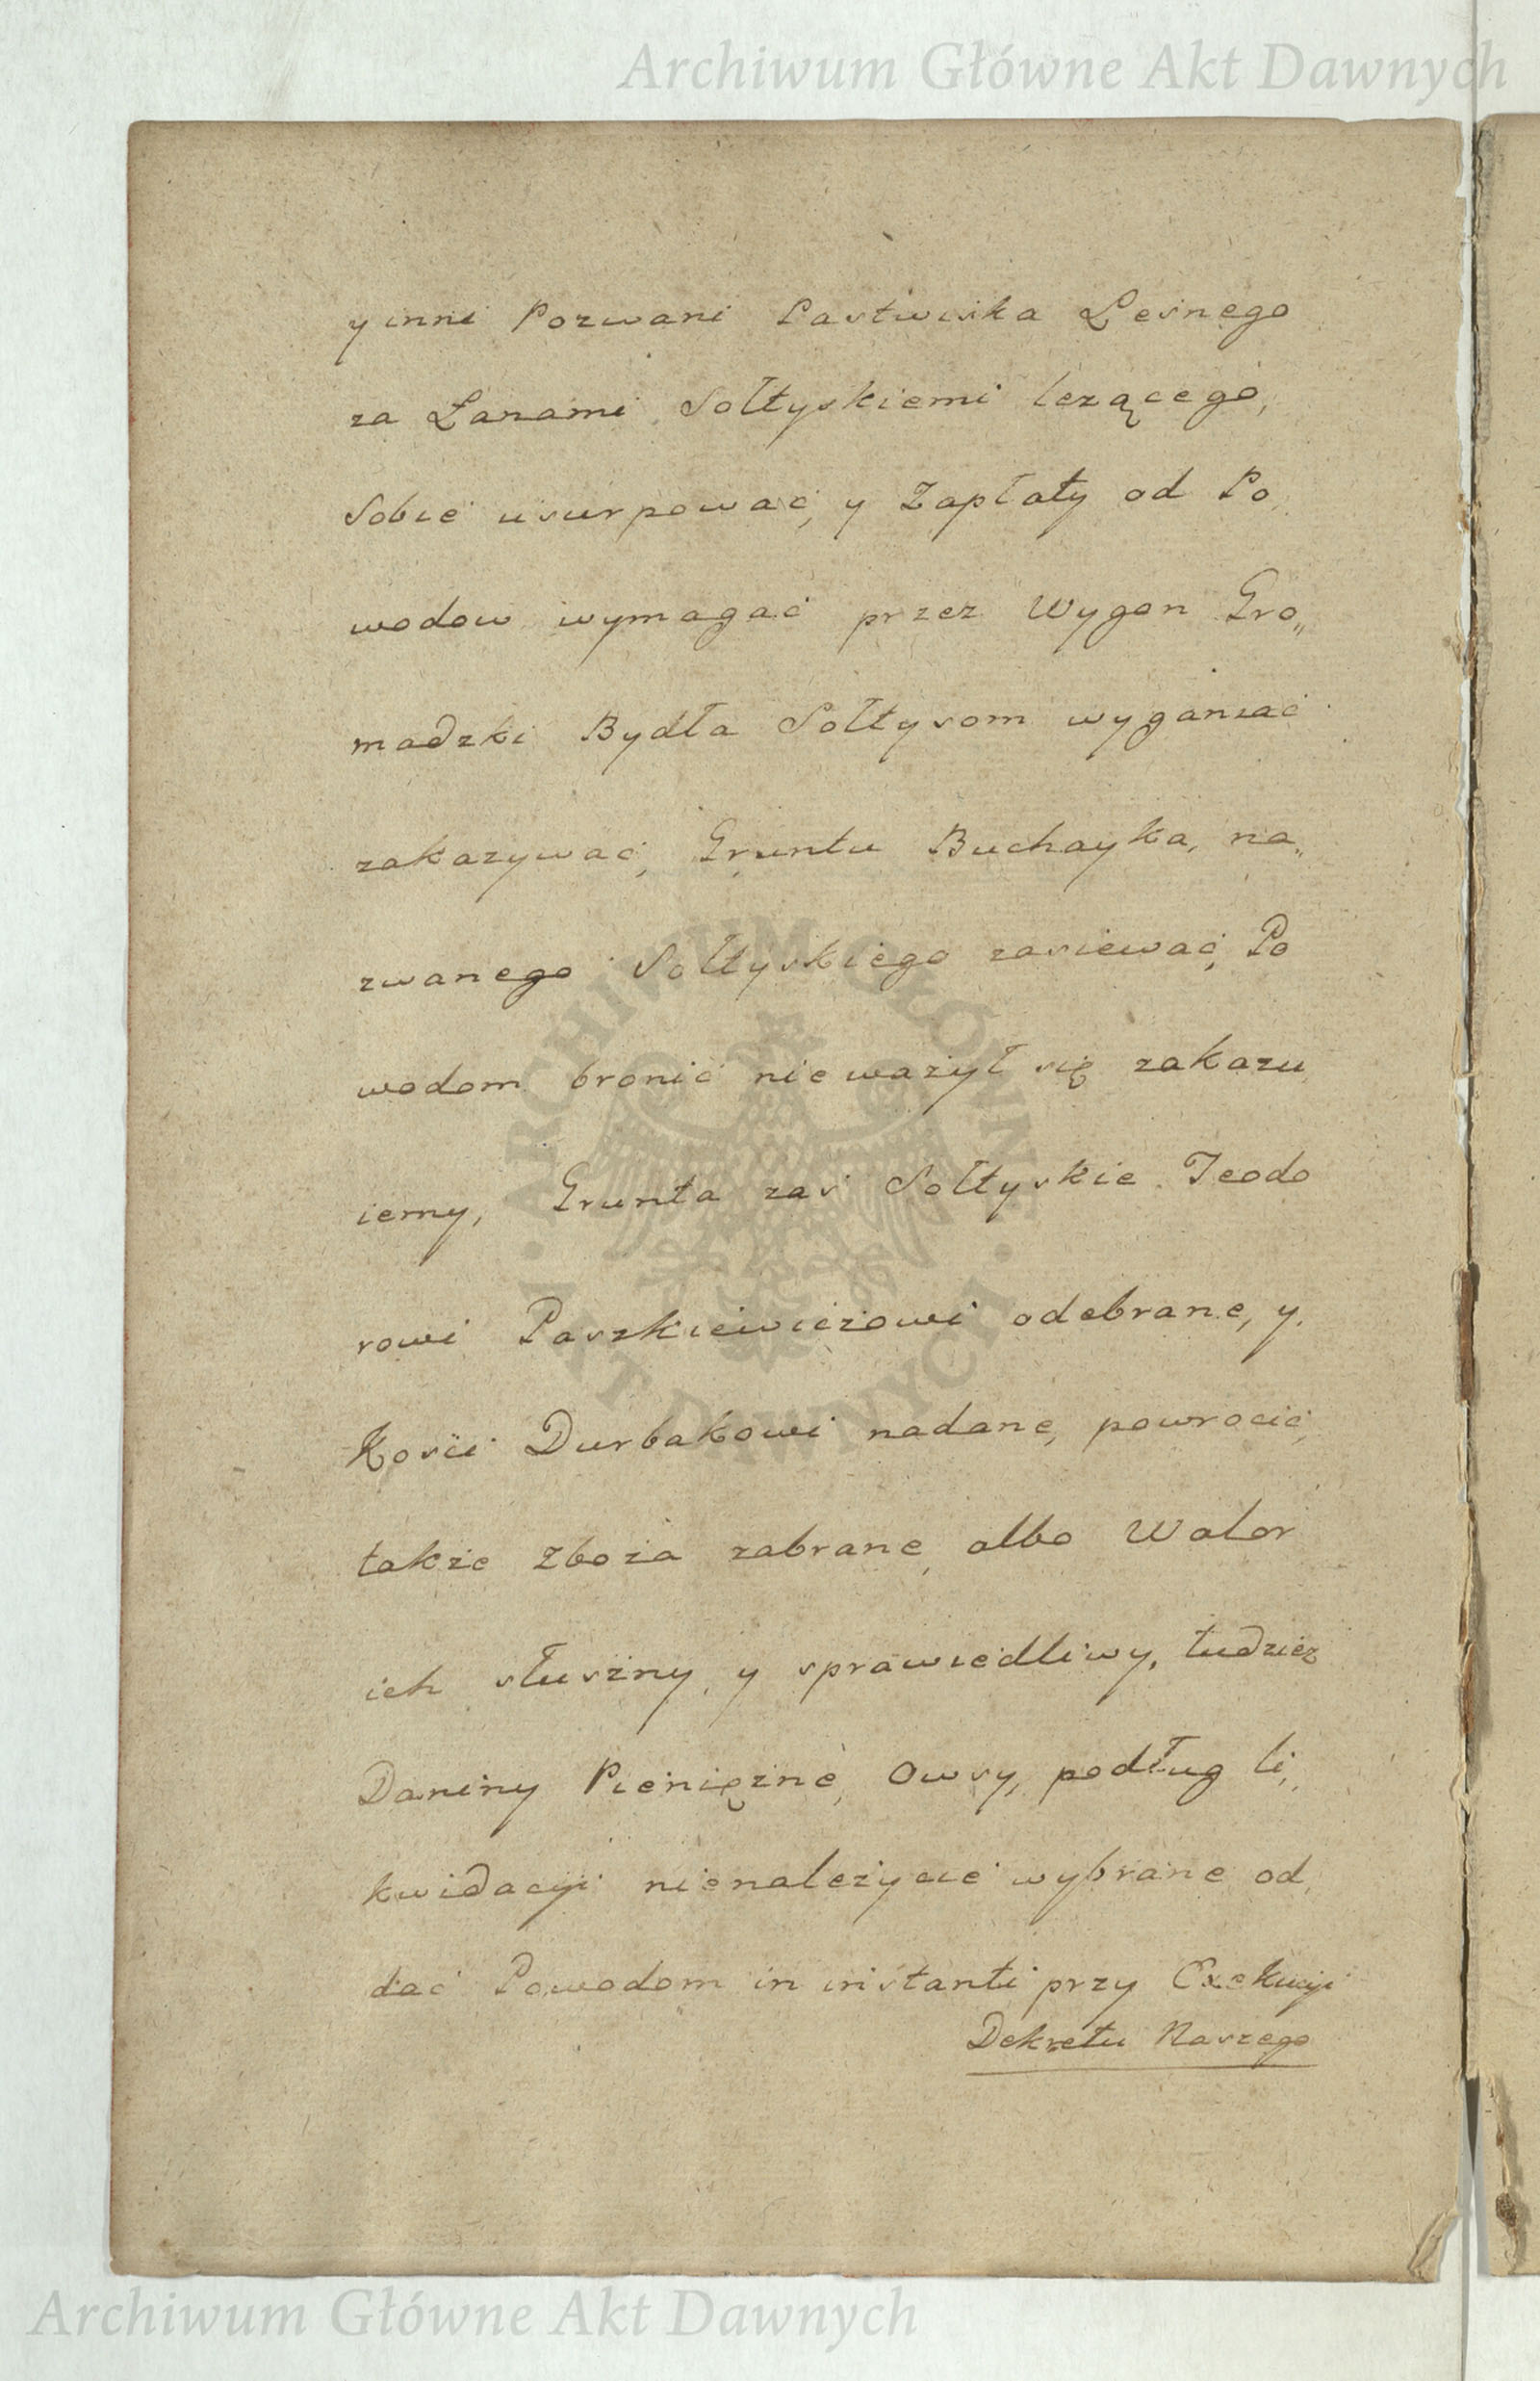 Archiwum Główne Akt Dawnych
y inni Pozwani Pastwiska Lesnego
za Łanami Sołtyskiemi lezącego,
Sobie usurpować, y Zapłaty od Po,
wodow wymagać przez Wygon Gro„
madzki Bydła Sołtysom wyganiać
zakazywać, Gruntu Buchayka, na„
zwanego Sołtyskiego zasiewać, Po
wodom bronić nie ważył się zakazu,
iemy, Grunta zas Sołtyskie Teodo
rowi Paszkiewiczowi odebrane, y,
Kosci Durbakowi nadane, powrocić,
także Zboża zabrane, albo Walor
ich słuszny, y sprawiedliwy, tudzież
Daniny Pieniężne, Owsy, podług li„
kwidacyi nienależycie wybrane od,
dać Powodom in instanti przy Exekucyi
Dekretu Naszego
ARCHIWUM GŁÓWNE · AKT DAWNYCH ·
Archiwum Główne Akt Dawnych